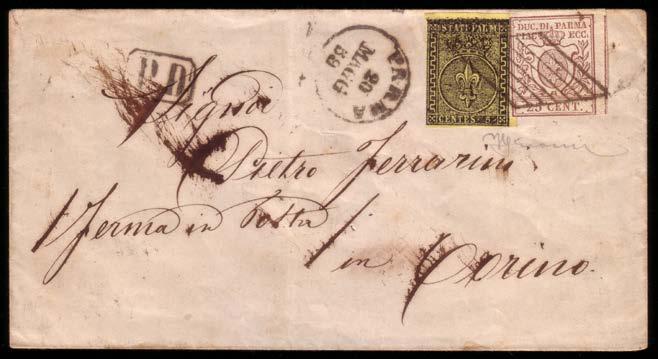 P.D.
PARMA
20
MAGG
59
STATI PARM.
CENTES. 5
DUC. DI PARMA
PIAC. ECC.
25 CENT.
Signor
Pietro Ferrarini
Ferma in Posta
in Torino.